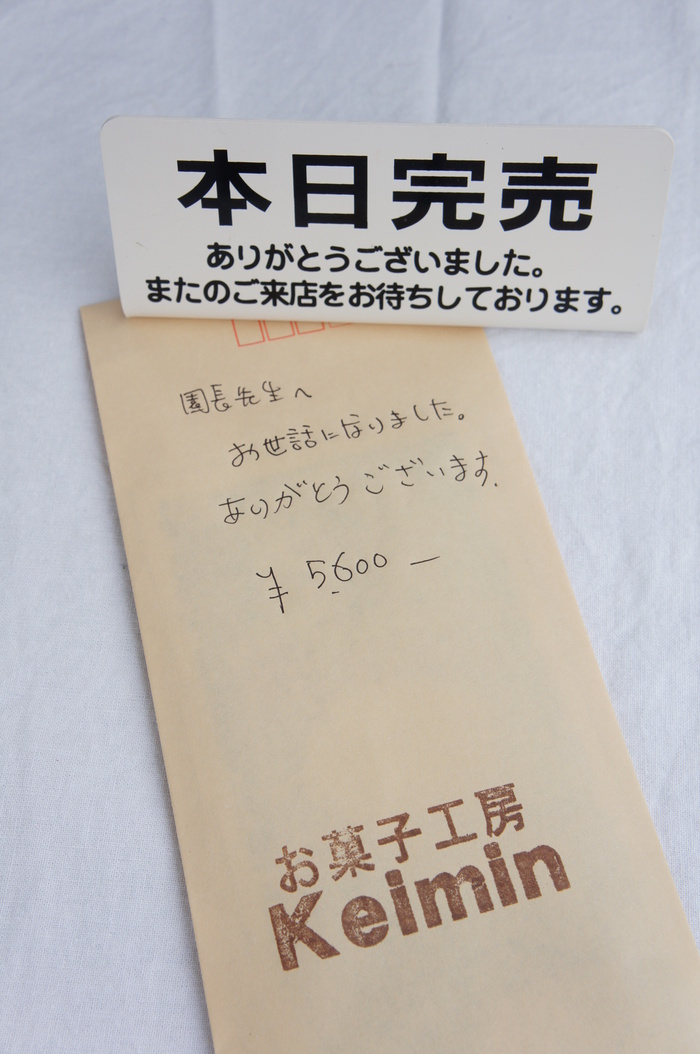 本日完売
ありがとうございました。
またのご来店をお待ちしております。
園長先生へ
お世話になりました。
ありがとうございます.
￥5,600―
お菓子工房
Keimin